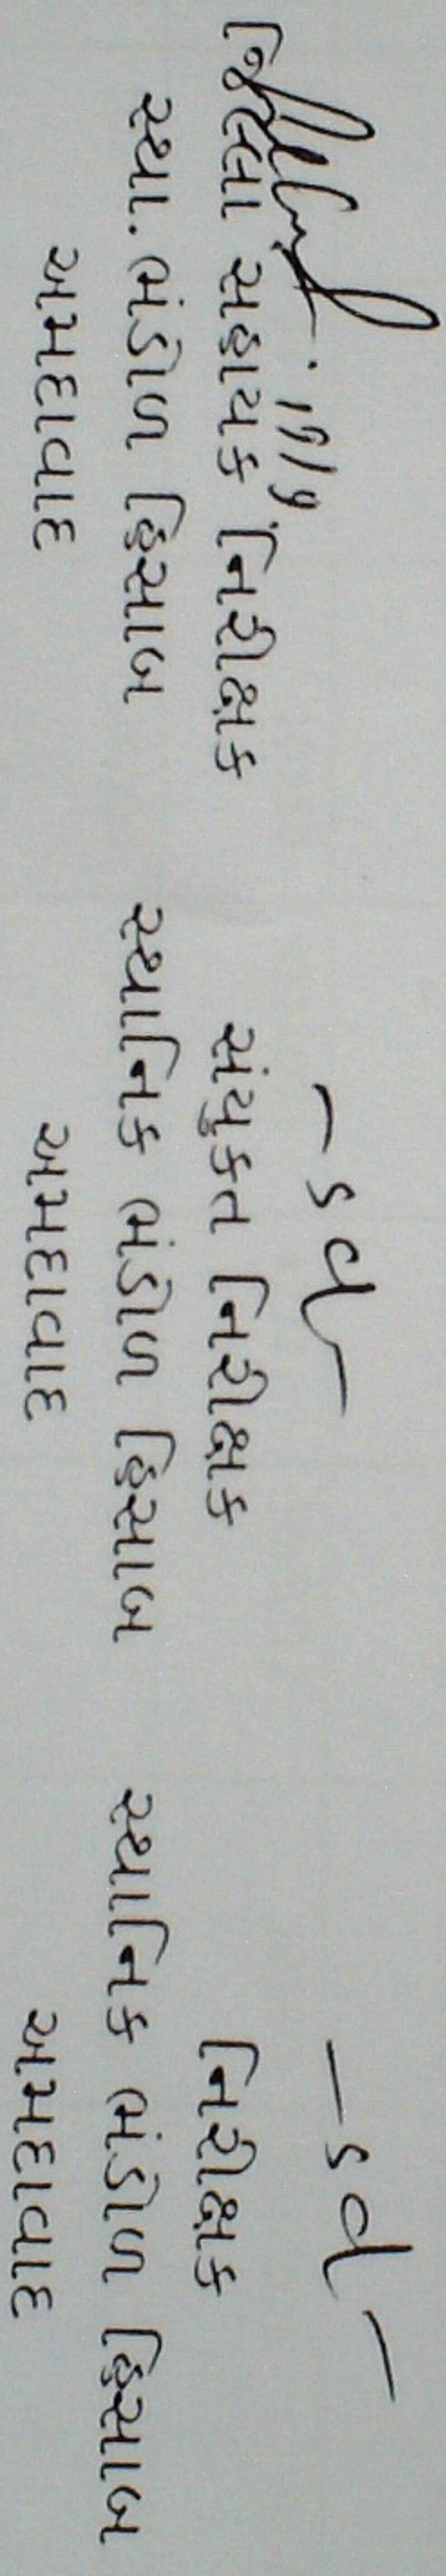 જિલ્લા સહાયક નિરીક્ષક
સ્થા. ભંડોળ હિસાબ
અમદાવાદ
-sd-
સંયુકત નિરીક્ષક
સ્થાનિક ભંડોળ હિસાબ
અમદાવાદ
-sd-
નિરીક્ષક
સ્થાનિક ભંડોળ હિસાબ
અમદાવાદ